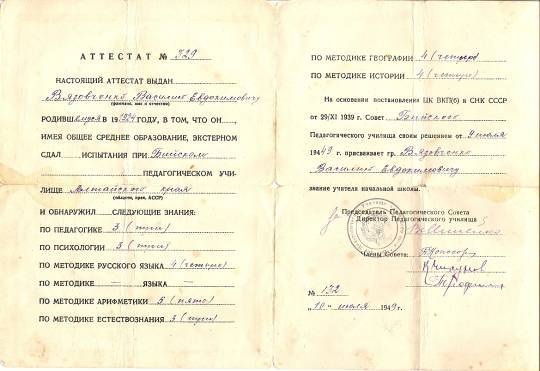 АТТЕСТАТ № 329
НАСТОЯЩИЙ АТТЕСТАТ ВЫДАН
Вязовченко Василию Евдокимовичу
(фамилия, имя и отчество)
РОДИВШемуся В 1924 ГОДУ, В ТОМ, ЧТО ОН
ИМЕЯ ОБЩЕЕ СРЕДНЕЕ ОБРАЗОВАНИЕ, ЭКСТЕРНОМ
СДАЛ ИСПЫТАНИЯ ПРИ Бийском
ПЕДАГОГИЧЕСКОМ УЧИ-
ЛИЩЕ Алтайского края
(области, края, АССР)
И ОБНАРУЖИЛ СЛЕДУЮЩИЕ ЗНАНИЯ:
ПО ПЕДАГОГИКЕ 3 (три)
ПО ПСИХОЛОГИИ 3 (три)
ПО МЕТОДИКЕ РУССКОГО ЯЗЫКА 4 (четыре)
ПО МЕТОДИКЕ — ЯЗЫКА —
ПО МЕТОДИКЕ АРИФМЕТИКИ 5 (пять)
ПО МЕТОДИКЕ ЕСТЕСТВОЗНАНИЯ 3 (три)
ПО МЕТОДИКЕ ГЕОГРАФИИ 4 (четыре)
ПО МЕТОДИКЕ ИСТОРИИ 4 (четыре)
На основании постановления ЦК ВКП(б) и СНК СССР
от 29/XI 1939 г. Совет Бийского
Педагогического училища своим решением от 9 июля
1949 г. присваивает гр. Вязовченко
Василию Евдокимовичу
звание учителя начальной школы.
Председатель Педагогического Совета
Директор Педагогического училища
Члены Совета:
№ 132
„10" июля 1949 г.